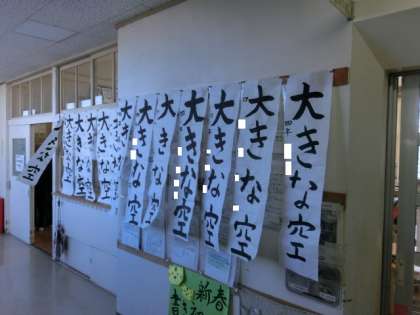 大きな空
四年
大きな空
四
大きな空
大きな空
大きな空
大きな空
大きな空
大きな空
大きな空
大きな空
大きな空
大きな空
新春
書き初